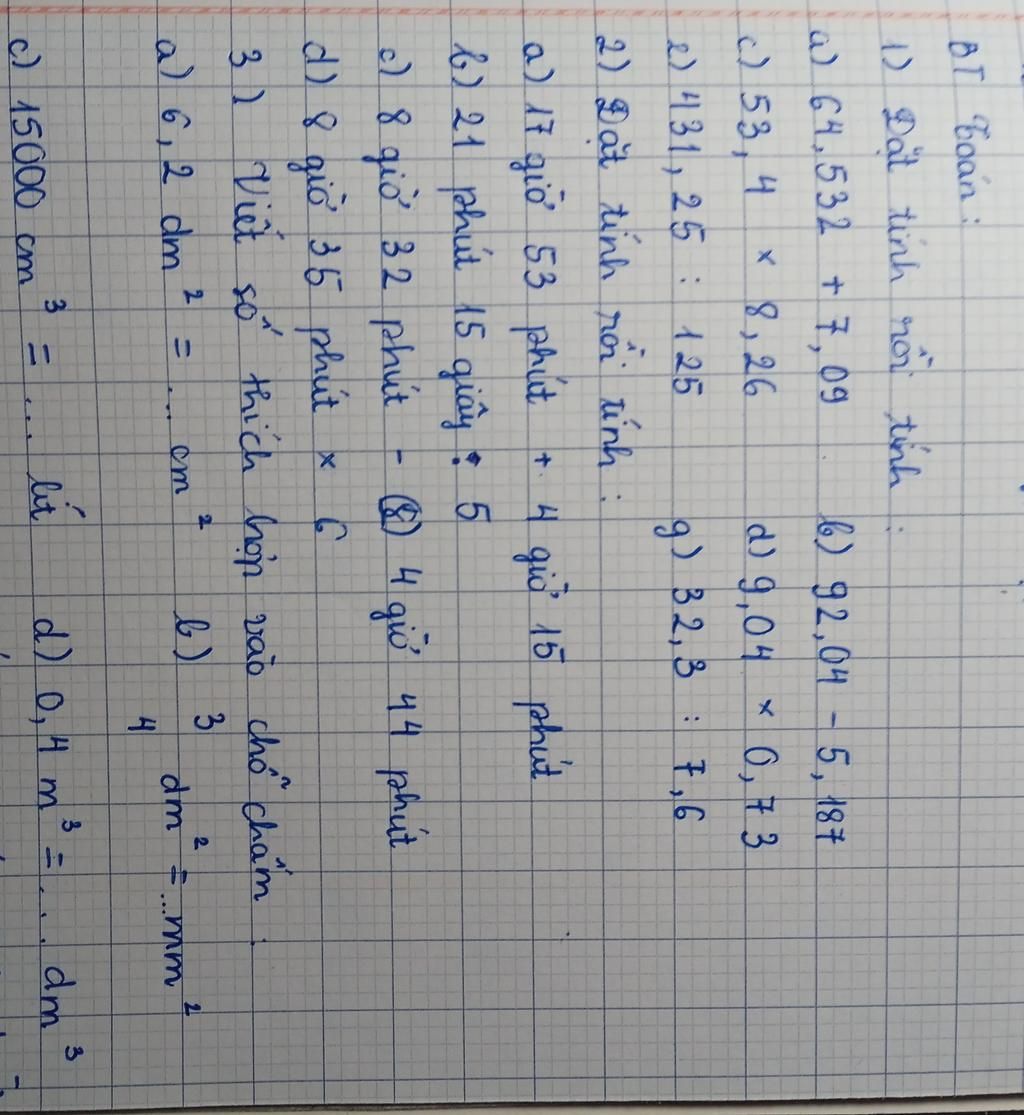 BT Toán:
1) Đặt tính rồi tính:
a) 64,532 + 7,09 b) 92,04 - 5,187
c) 53,4 × 8,26 d) 9,04 × 0,73
e) 431,25 : 125 g) 32,3 : 7,6
2) Đặt tính rồi tính:
a) 17 giờ 53 phút + 4 giờ 15 phút
b) 21 phút 15 giây : 5
c) 8 giờ 32 phút - (8) 4 giờ 44 phút
d) 8 giờ 35 phút × 6
3) Viết số thích hợp vào chỗ chấm:
a) 6,2 dm² = ... cm² b) 3/4 dm² = ...mm²
c) 15000 cm³ = ... lít d) 0,4 m³ = ... dm³